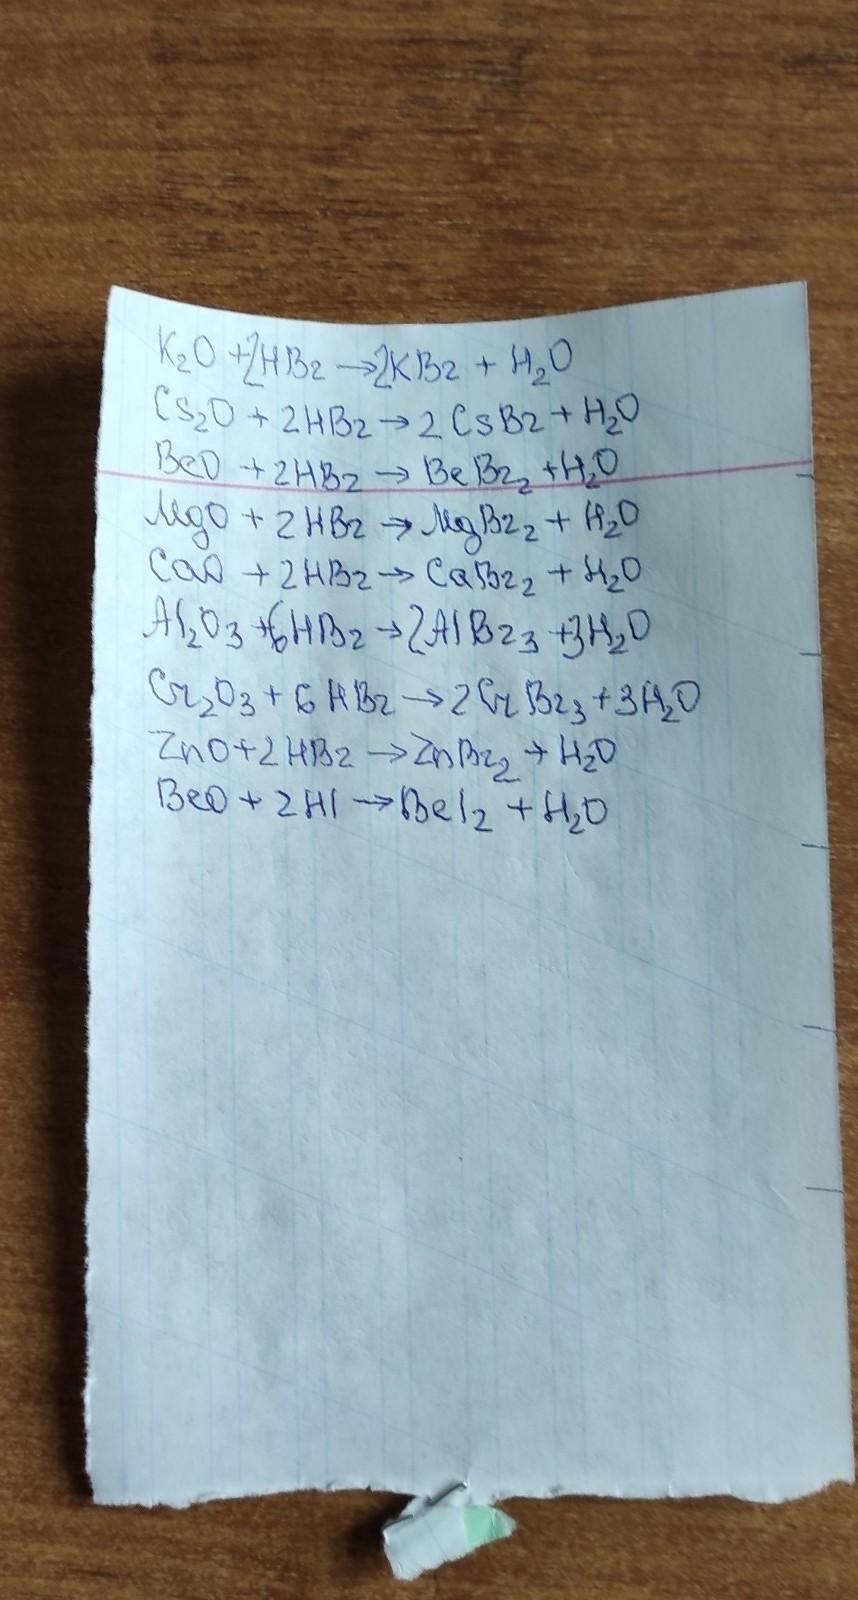 K₂O + 2HBr → 2KBr + H₂O
Cs₂O + 2HBr → 2CsBr + H₂O
BeO + 2HBr → BeBr₂ + H₂O
MgO + 2HBr → MgBr₂ + H₂O
CaO + 2HBr → CaBr₂ + H₂O
Al₂O₃ + 6HBr → 2AlBr₃ + 3H₂O
Cr₂O₃ + 6HBr → 2CrBr₃ + 3H₂O
ZnO + 2HBr → ZnBr₂ + H₂O
BeO + 2HI → BeI₂ + H₂O